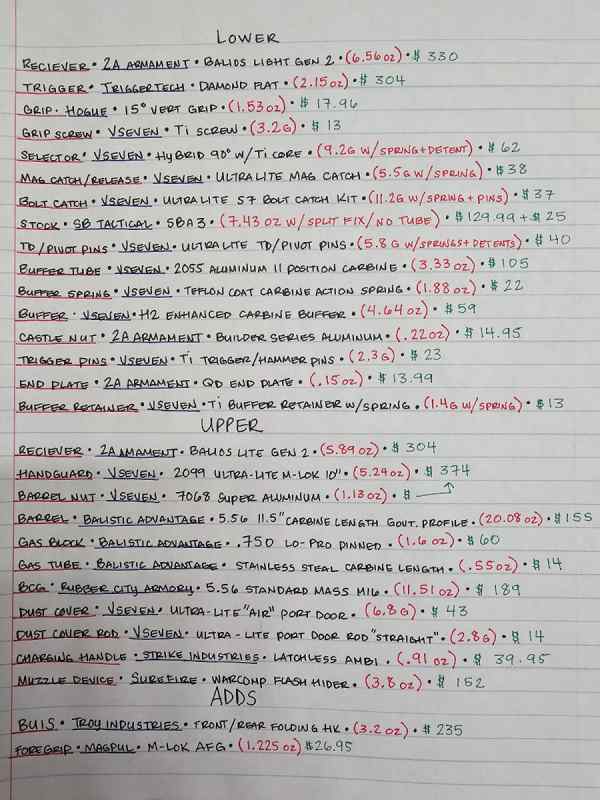 LOWER
RECIEVER • 2A ARMAMENT • BALIOS LIGHT GEN 2 • (6.56oz) • $ 330
TRIGGER • TRIGGERTECH • DAMOND FLAT • (2.15oz) • $ 304
GRIP • HOGUE • 15° VERT GRIP • (1.53oz) • $ 17.96
GRIP SCREW • VSEVEN • Ti SCREW • (3.2G) • $ 13
SELECTOR • VSEVEN • HYBRID 90° W/Ti CORE • (9.2G W/SPRING+DETENT) • $ 62
MAG CATCH/RELEASE • VSEVEN • ULTRALITE MAG CATCH • (5.5G W/SPRING) • $38
BOLT CATCH • VSEVEN • ULTRALITE S7 BOLT CATCH KIT • (11.2G W/SPRING + PINS) • $37
STOCK • SB TACTICAL • SBA3 • (7.43 OZ W/SPLIT FIX/NO TUBE) • $129.99 + $ 25
TD/PIVOT PINS • VSEVEN • ULTRALITE TD/PIVOT PINS • (5.8 G W/SPRINGS+DETENTS) • $ 40
BUFFER TUBE • VSEVEN • 2055 ALUMINUM 11 POSITION CARBINE • (3.33oz) • $105
BUFFER SPRING • VSEVEN • TEFLON COAT CARBINE ACTION SPRING • (1.88oz) • $ 22
BUFFER • VSEVEN • H2 ENHANCED CARBINE BUFFER • (4.64oz) • $ 59
CASTLE NUT • 2A ARMAMENT • BUILDER SERIES ALUMINUM • (.22oz) • $ 14.95
TRIGGER PINS • VSEVEN • Ti TRIGGER/HAMMER PINS • (2.3G) • $ 23
END PLATE • 2A ARMAMENT • QD END PLATE • (.15oz) • $ 13.99
BUFFER RETAINER • VSEVEN • Ti BUFFER RETAINER W/SPRING • (1.4G W/SPRING) • $13
UPPER
RECIEVER • 2A AMAMENT • BALIOS LITE GEN 2 • (5.89oz) • $ 304
HANDGUARD • VSEVEN • 2099 ULTRA-LITE M-LOK 10" • (5.24oz) • $ 374
BARREL NUT • VSEVEN • 7068 SUPER ALUMINUM • (1.13oz) • $
BARREL • BALISTIC ADVANTAGE • 5.56 11.5" CARBINE LENGTH GOVT. PROFILE • (20.08oz) • $155
GAS BLOCK • BALISTIC ADVANTAGE • .750 LO-PRO PINNED • (1.6oz) • $ 60
GAS TUBE • BALISTIC ADVANTAGE • STAINLESS STEAL CARBINE LENGTH • (.55oz) • $ 14
BCG • RUBBER CITY ARMORY • 5.56 STANDARD MASS M16 • (11.51oz) • $ 189
DUST COVER • VSEVEN • ULTRA-LITE "AIR" PORT DOOR • (6.8G) • $ 43
DUST COVER ROD • VSEVEN • ULTRA-LITE PORT DOOR ROD "STRAIGHT" • (2.8G) • $ 14
CHARGING HANDLE • STRIKE INDUSTRIES • LATCHLESS AMBI • (.91 oz) • $ 39.95
MUZZLE DEVICE • SUREFIRE • WARCOMP FLASH HIDER • (3.8oz) • $ 152
ADDS
BUIS • TROY INDUSTRIES • FRONT/REAR FOLDING HK • (3.2oz) • $ 235
FOREGRIP • MAGPUL • M-LOK AFG • (1.225oz) $26.95